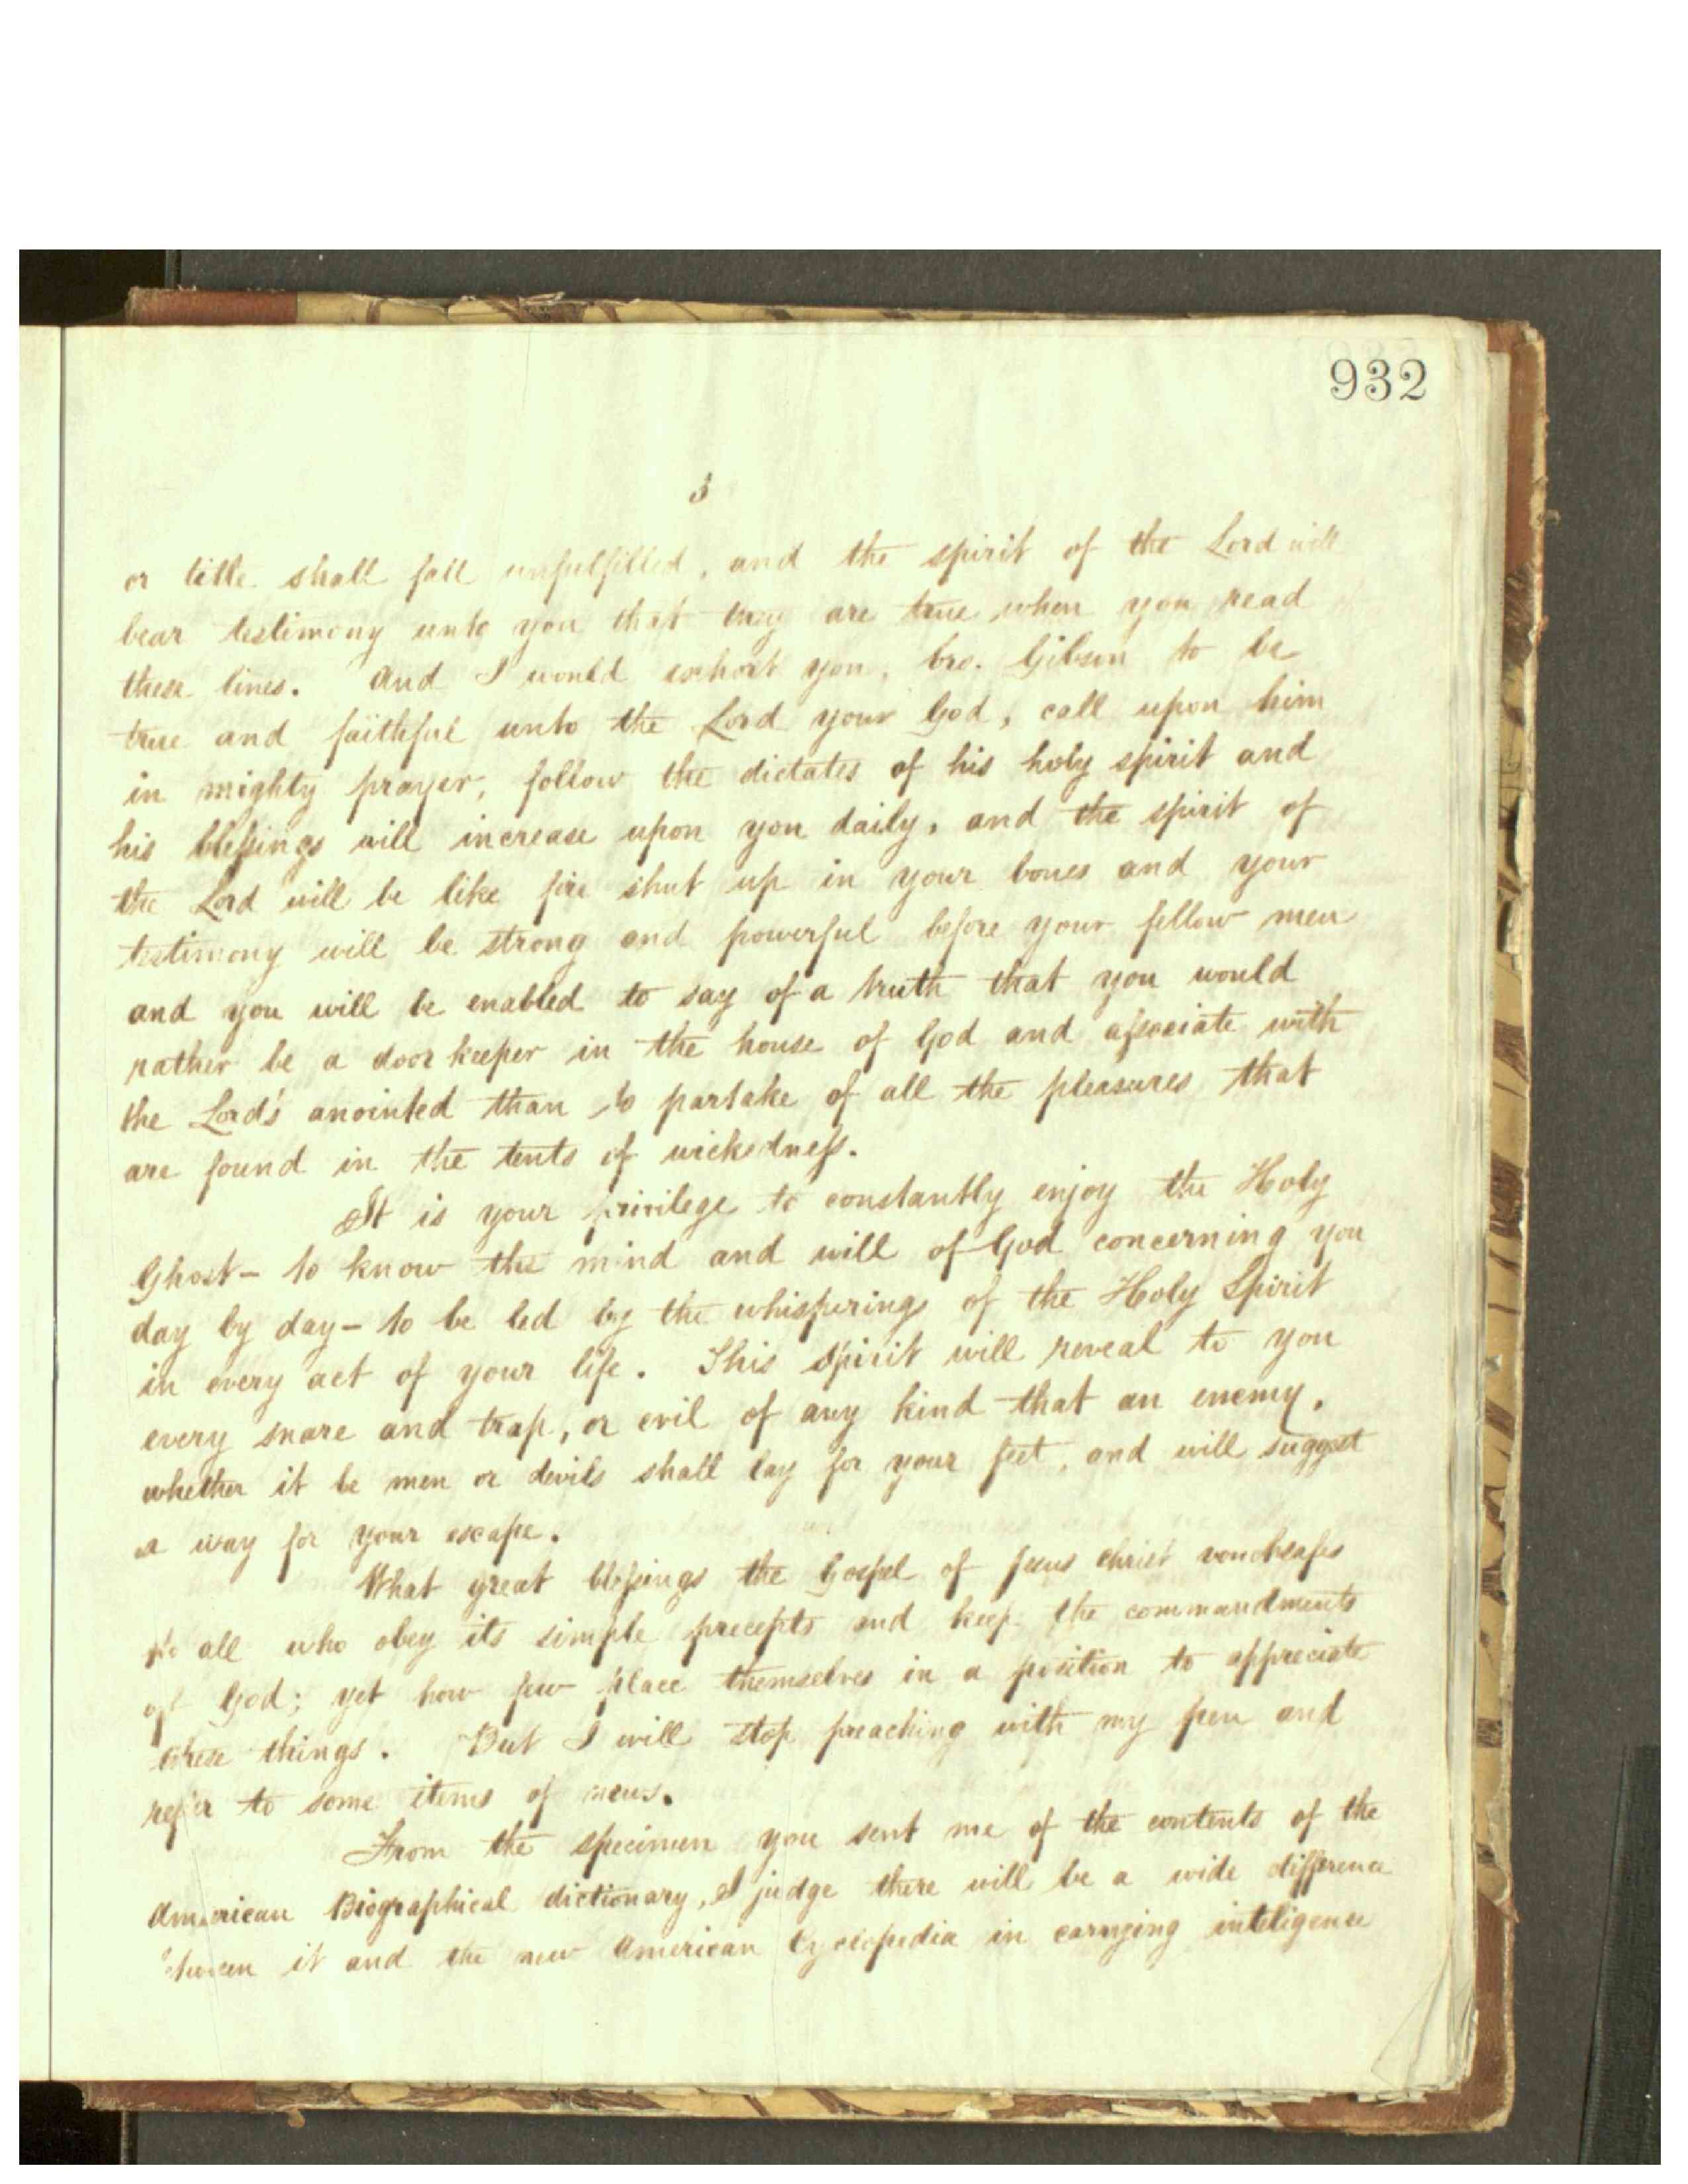 932
3
or tittle shall fall unfulfilled, and the spirit of the Lord will
bear testimony unto you that they are true, when you read
these lines. And I would exhort you, bro. Gibson to be
true and faithful unto the Lord your God, call upon him
in mighty prayer, follow the dictates of his holy spirit and
his blessings will increase upon you daily, and the spirit of
the Lord will be like fire shut up in your bones and your
testimony will be strong and powerful before your fellow men
and you will be enabled to say of a truth that you would
rather be a door keeper in the house of God and associate with
the Lord's anointed than to partake of all the pleasures that
are found in the tents of wickedness.
It is your privilege to constantly enjoy the Holy
Ghost - to know the mind and will of God concerning you
day by day - to be led by the whisperings of the Holy Spirit
in every act of your life. This Spirit will reveal to you
every snare and trap, or evil of any kind that an enemy,
whether it be men or devils shall lay for your feet, and will suggest
a way for your escape.
What great blessings the Gospel of Jesus Christ vouchsafes
to all who obey its simple precepts and keep the commandments
of God; yet how few place themselves in a position to appreciate
these things. But I will stop preaching with my pen and
refer to some items of news.
From the specimen you sent me of the contents of the
American Biographical dictionary, I judge there will be a wide difference
between it and the new American Cyclopedia in carrying inteligence